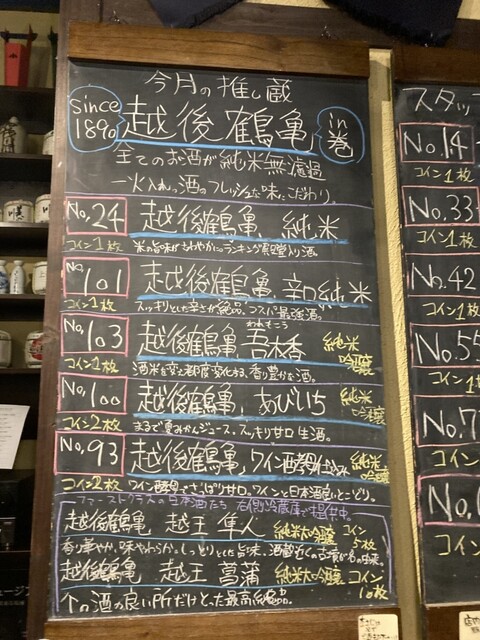 今月の推し蔵
since 1890
越後鶴亀
in 巻
全てのお酒が純米無濾過
一火入れっ酒のフレッシュな味、こだわり。
No,24 越後鶴亀 純米
コイン1枚
No,101 越後鶴亀 辛口純米
コイン1枚 スッキリとした辛さが絶品、コスパ最強酒。
No,103 越後鶴亀、吾木香 純米吟醸
われもこう
コイン1枚 香り豊かな酒。
No,100 越後鶴亀、あびいち 純米吟醸
コイン2枚 まるで夏みかんジュース、スッキリ甘口 生酒。
No,93 越後鶴亀、ワイン酵母仕込み 純米吟醸
コイン2枚 ワイン酵母でさっぱり甘口。ワインと日本酒良いとこどり。
ファーストクラスの日本酒たち 右側冷蔵庫で提供中。
越後鶴亀 越王 隼人 純米大吟醸 コイン5枚
香り華やか、味やわらか。しっとりとした旨味、
越後鶴亀 越王 菖蒲 純米大吟醸 コイン10枚
個の酒の良い所だけとった最高絶品。
スタッフ
No.14
コイン1枚
No.33
コイン1枚
No.42
コイン1枚
No.55
コイン1枚
No.7
コイン
No.
コイン